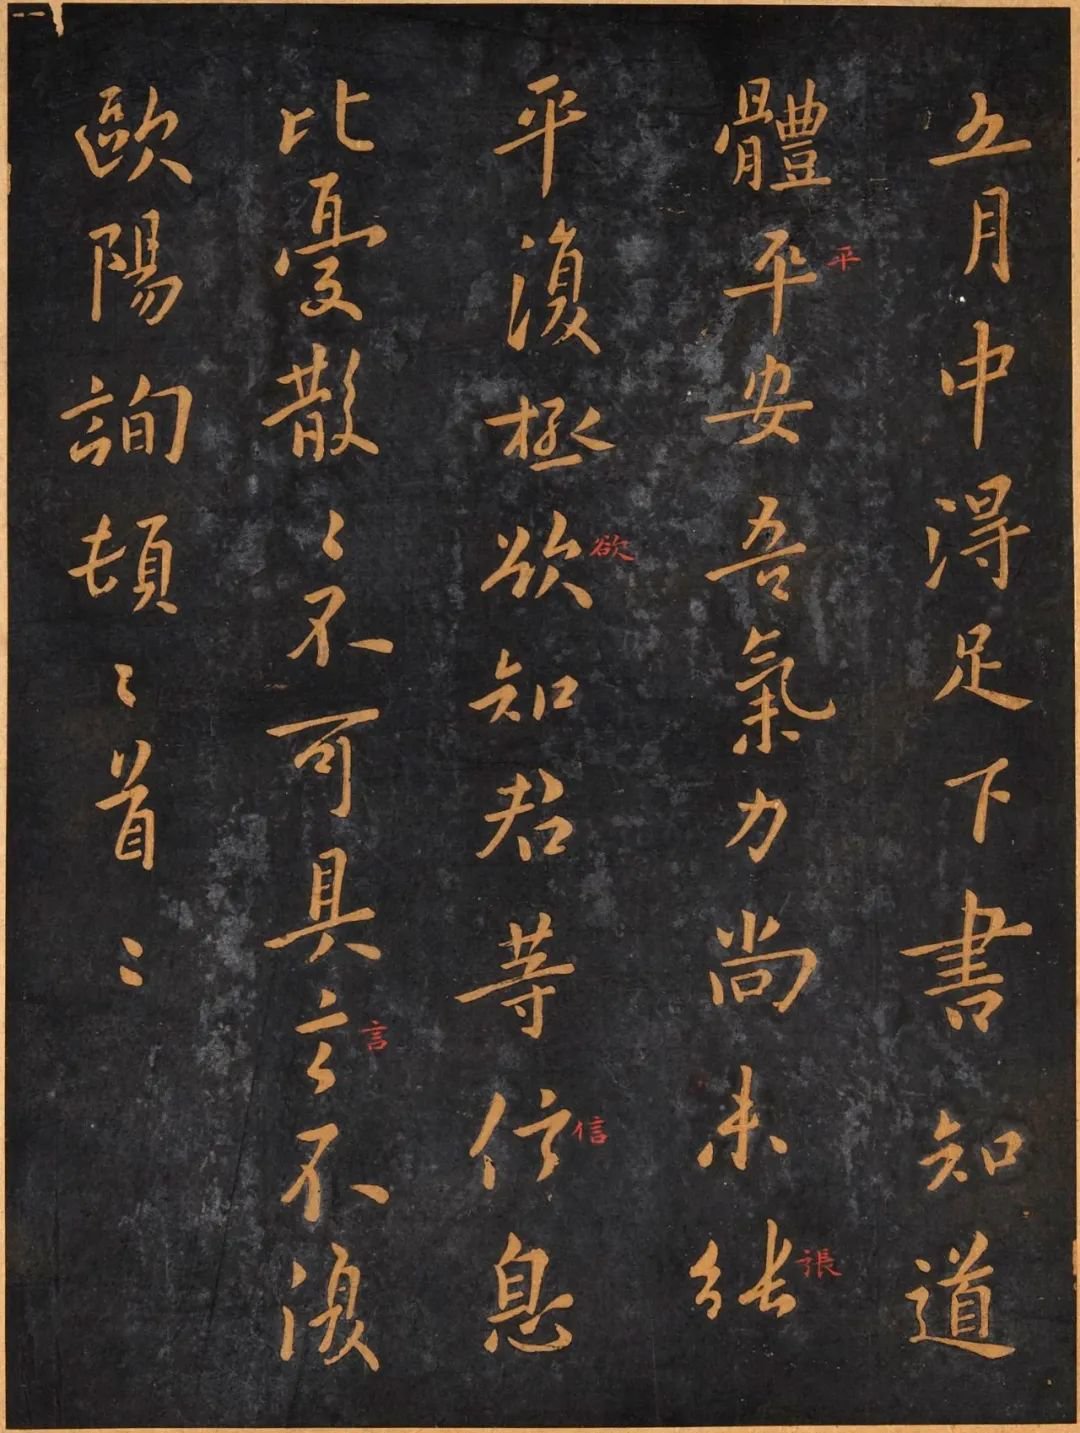 五月中得足下書知道
體平安吾氣力尚未張
平
張
平復極欲知君等信息
欲
信
比憂散〻不可具言不復
言
歐陽詢頓〻首〻